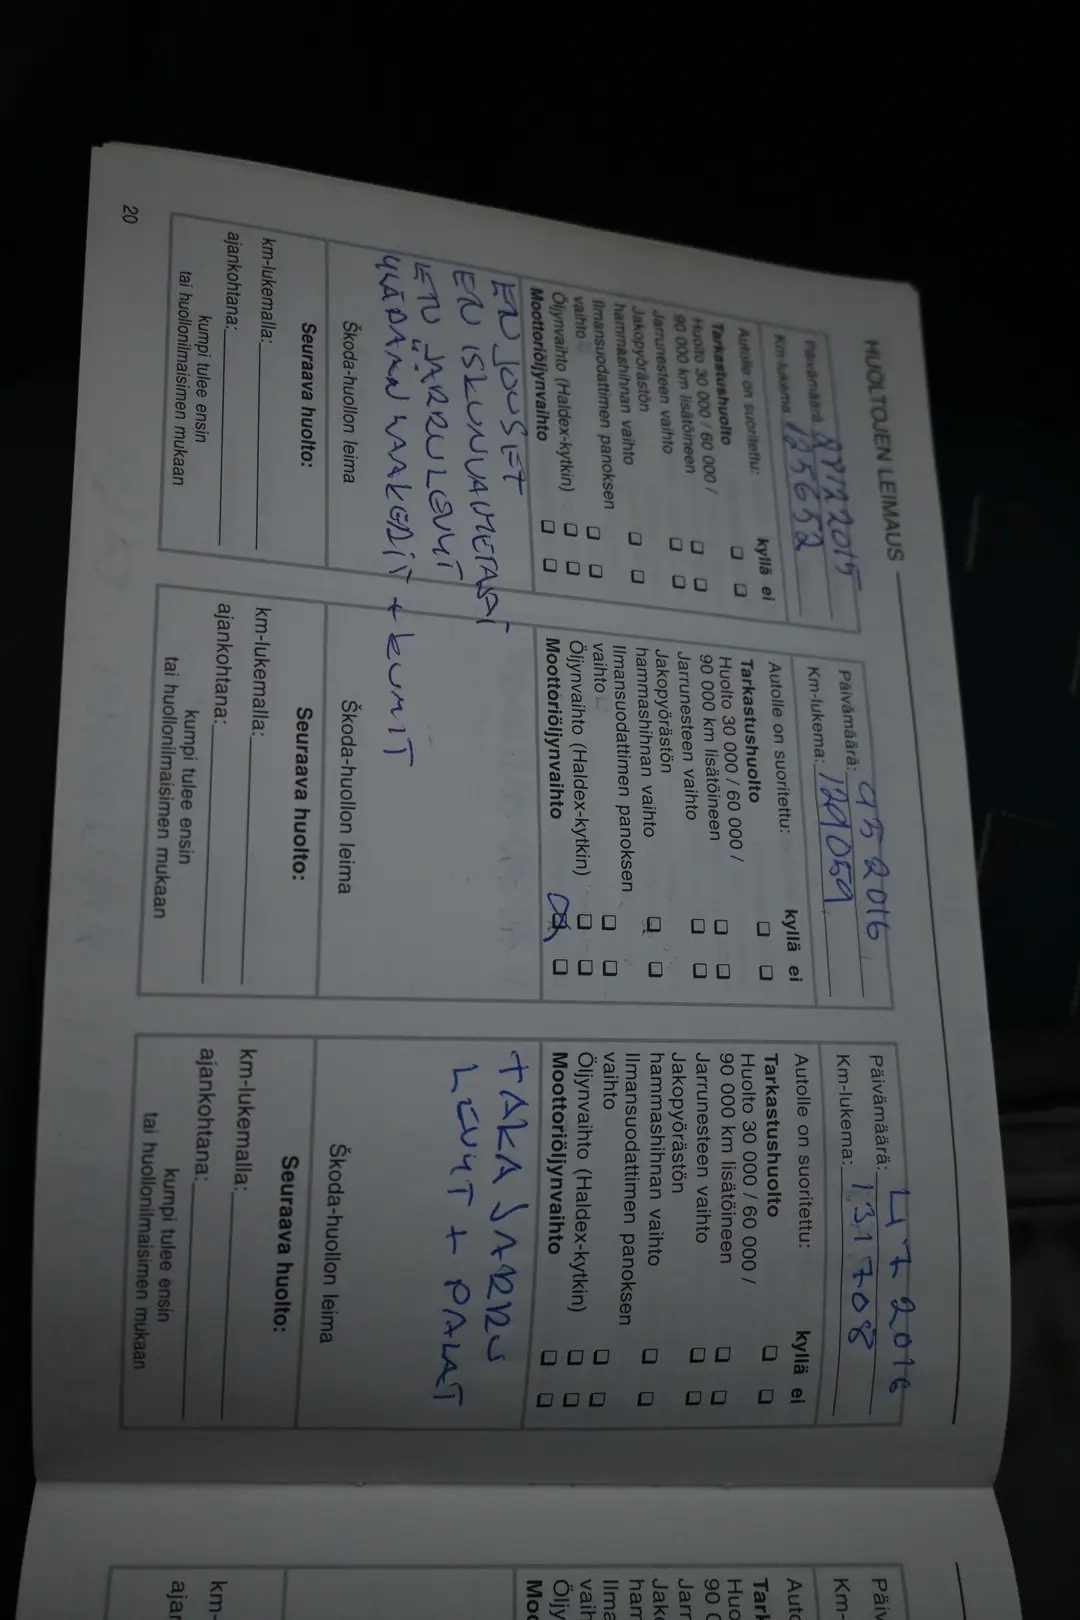 HUOLTOJEN LEIMAUS
Päivämäärä: 2015
Km-lukema: 125652
Autolle on suoritettu: kyllä ei
Tarkastushuolto
Huolto 30 000 / 60 000 /
90 000 km lisätöineen
Jarrunesteen vaihto
Jakopyörästön
hammashihnan vaihto
Ilmansuodattimen panoksen
vaihto
Öljynvaihto (Haldex-kytkin)
Moottoriöljynvaihto
EN JOUSET
EN ISKUNVAIMETASAT
ETU JÄRRULEVYT
YLÄPÄÄN LAAKERIT + KUMIT
Škoda-huollon leima
Seuraava huolto:
km-lukemalla:
ajankohtana:
kumpi tulee ensin
tai huollonilmaisimen mukaan
20
Päivämäärä: 9 5 2016
Km-lukema: 129059
Autolle on suoritettu: kyllä ei
Tarkastushuolto
Huolto 30 000 / 60 000 /
90 000 km lisätöineen
Jarrunesteen vaihto
Jakopyörästön
hammashihnan vaihto
Ilmansuodattimen panoksen
vaihto
Öljynvaihto (Haldex-kytkin)
Moottoriöljynvaihto
Škoda-huollon leima
Seuraava huolto:
km-lukemalla:
ajankohtana:
kumpi tulee ensin
tai huollonilmaisimen mukaan
Päivämäärä: 4 7 2016
Km-lukema: 131708
Autolle on suoritettu: kyllä ei
Tarkastushuolto
Huolto 30 000 / 60 000 /
90 000 km lisätöineen
Jarrunesteen vaihto
Jakopyörästön
hammashihnan vaihto
Ilmansuodattimen panoksen
vaihto
Öljynvaihto (Haldex-kytkin)
Moottoriöljynvaihto
TAKA JARRU
LEVYT + PALAT
Škoda-huollon leima
Seuraava huolto:
km-lukemalla:
ajankohtana:
kumpi tulee ensin
tai huollonilmaisimen mukaan
Päiv
Km-
Auto
Tark
Huo
90 0
Jarr
Jako
ham
Ilma
vaih
Öljy
Moo
km-
ajan